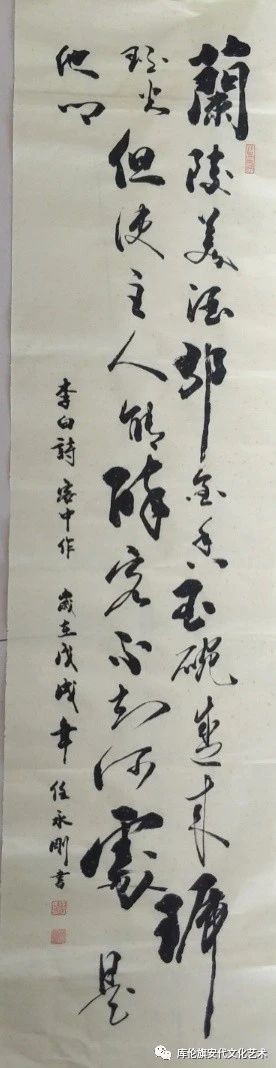 蘭陵美酒郁金香玉碗盛来琥
珀光但使主人能醉客不知何處是
他鄉
李白詩客中作 歲在戊戌年 任永剛書
库伦旗安代文化艺术